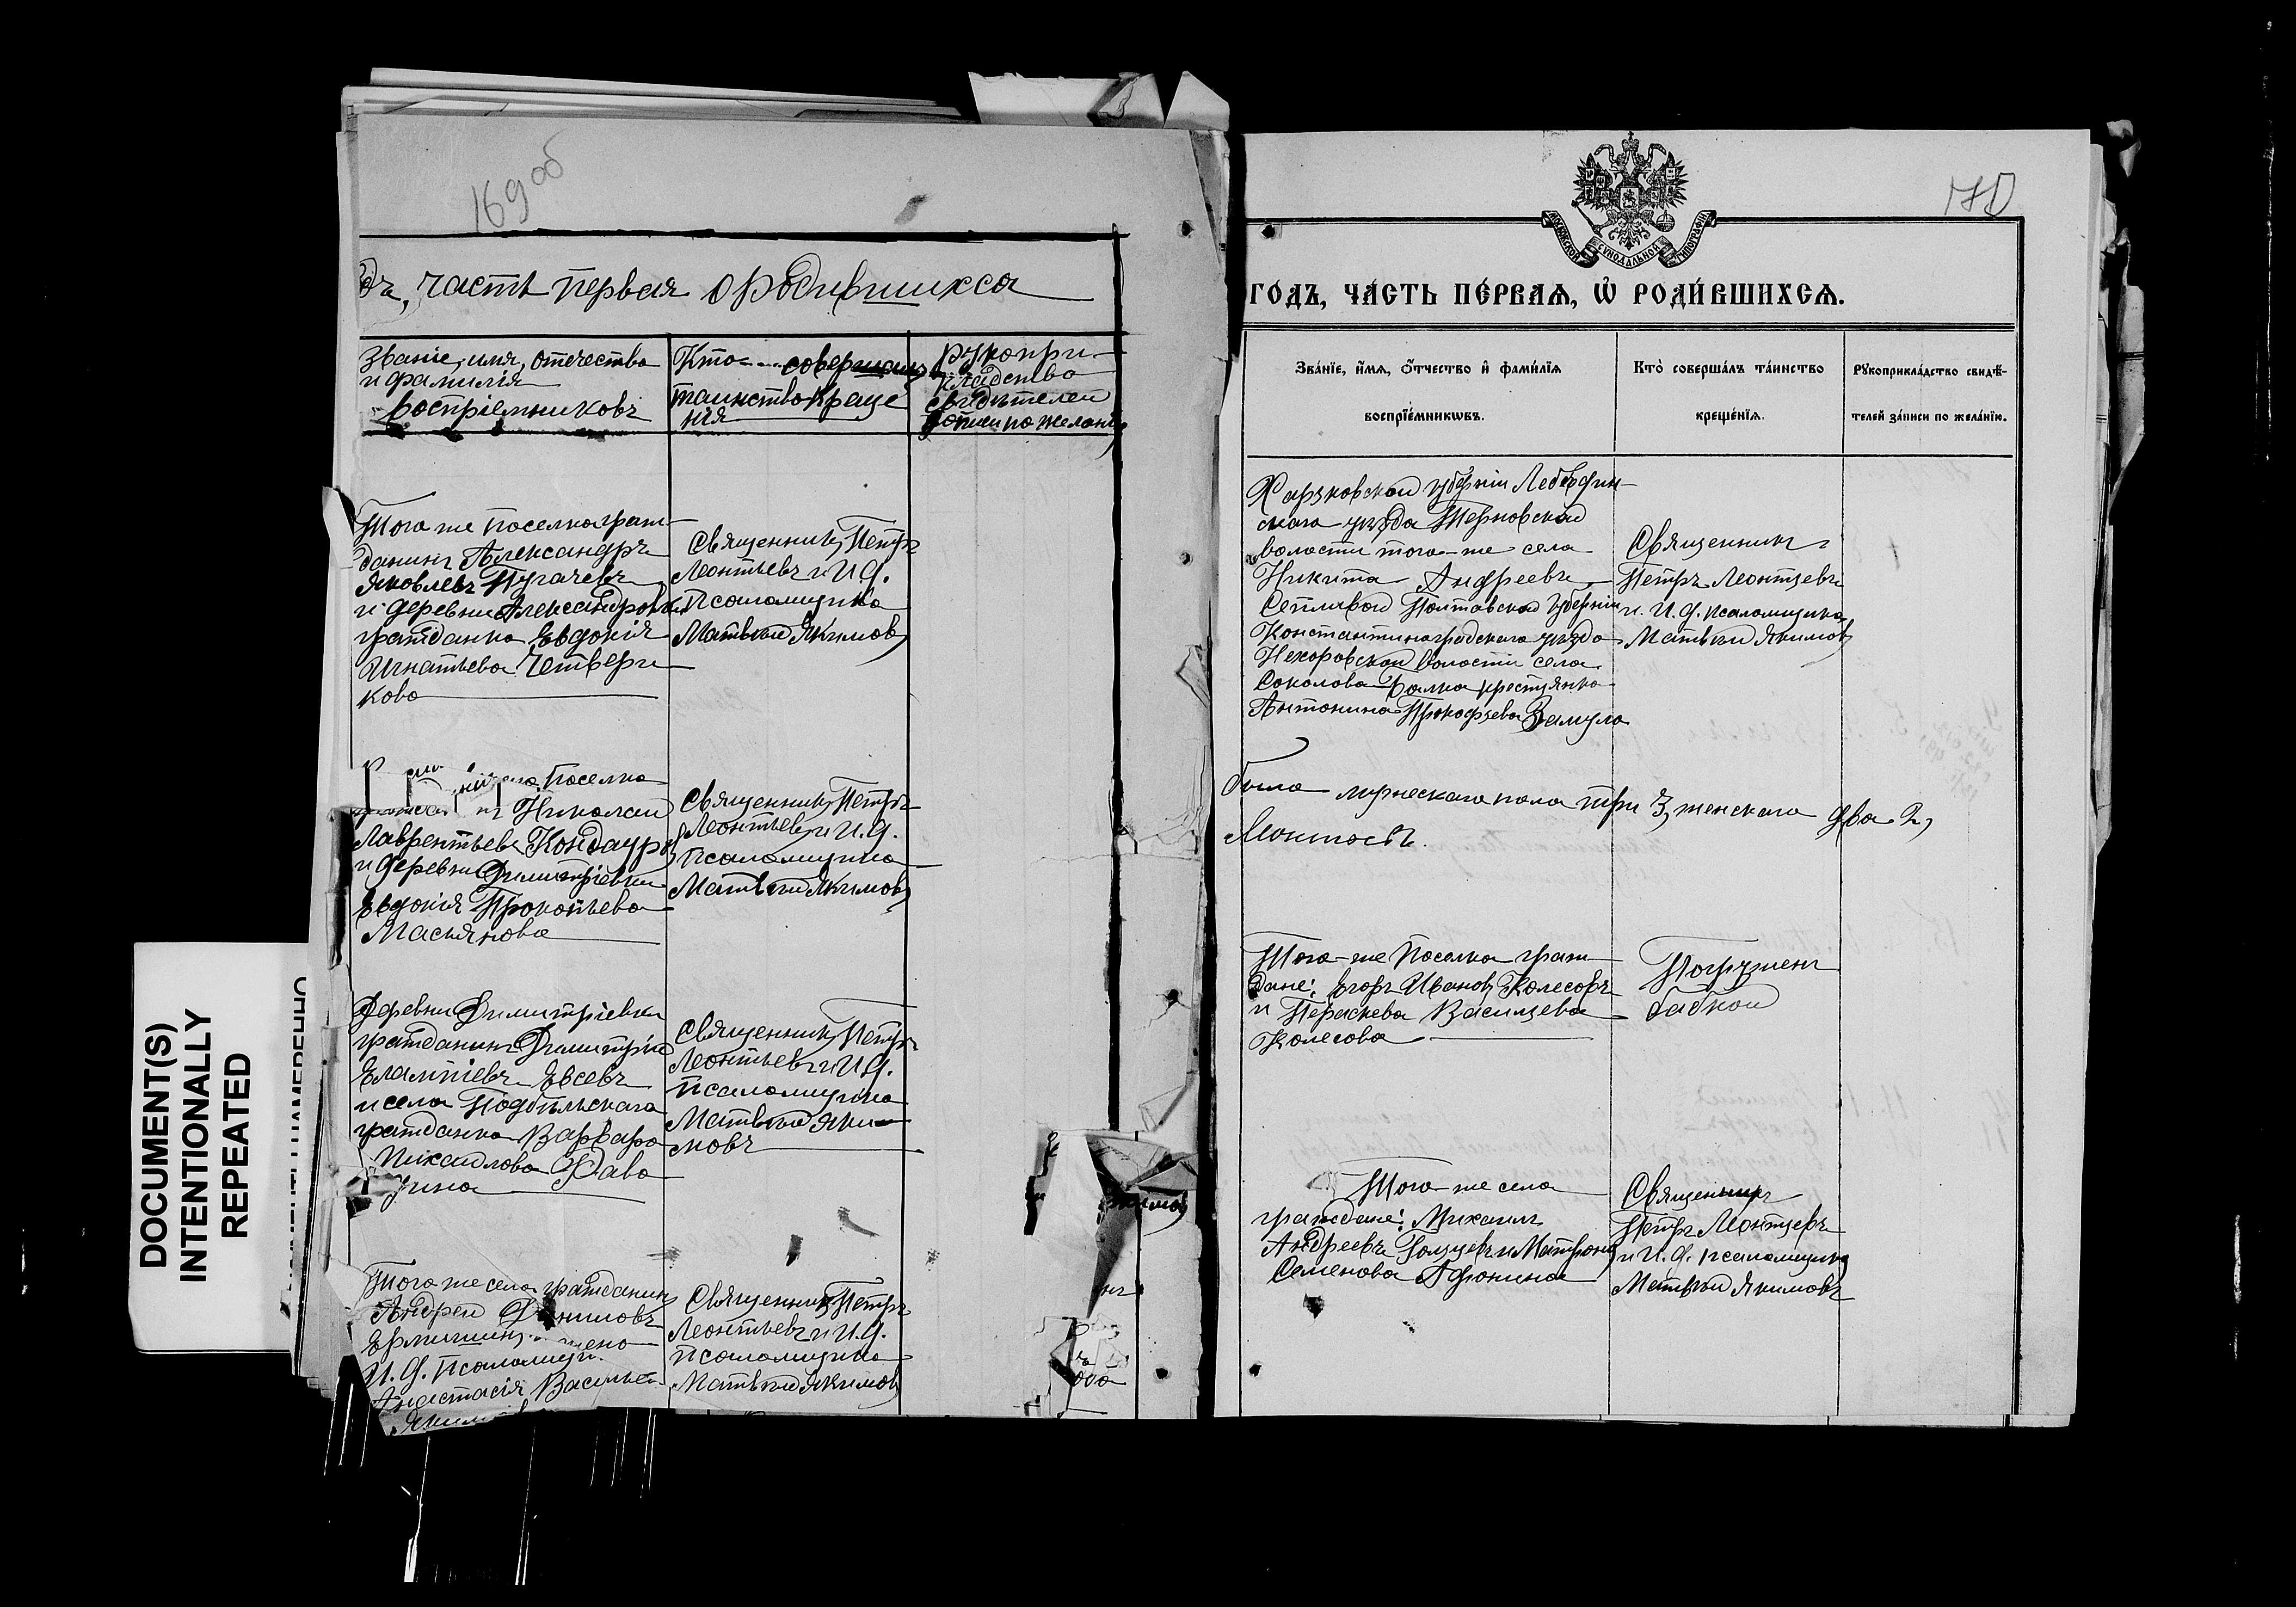 169 об
дъ, часть первая о родившихся
Званіе, имя, отечество
и фамилія
воспріемниковъ
Кто совершалъ
таинство краще
нія
Рукопри-
кладство
свидѣтелей
записи по желанію
Того же поселка граж-
данинъ Александръ
Яковлевъ Пугачевъ
и деревни Александровки
гражданка Евдокія
Игнатьева Четверги
кова
Священникъ Петръ
Леонтьевъ и И. д.
Псаломщика
Матвѣй Якимовъ
поселка
Николай
Лаврентьевъ Кондауръ
и деревни Димитріевки
Евдокія Прокопьева
Масьянова
Священникъ Петръ
Леонтьевъ и И. д.
псаломщика
Матвѣй Якимовъ
Деревни Димитріевки
гражданинъ Димитрій
Евлампіевъ Евсевъ
и села Подбѣльскаго
гражданка Варвара
Михаилова
Священникъ Петръ
Леонтьевъ и И. д.
псаломщика
Матвѣй Яки-
мовъ
Того же села гражданинъ
Андрей Даниловъ
Ермишинъ
И. д. псаломщи
Анастасія Василье
Священникъ Петръ
Леонтьевъ и И. д.
псаломщика
Матвѣй Якимовъ
DOCUMENT(S)
INTENTIONALLY
REPEATED
170
МОСКОВСКОЙ СѴНОДАЛЬНОЙ ТИПОГРАФІИ
ГО́ДЪ, ЧА́СТЬ ПЕ́РВАѦ, Ѡ҆ РОДИ́ВШИХСѦ.
Зва́нїе, и҆́мѧ, ѻ҆́тчество и҆ фами́лїѧ
воспрїе́мникѡвъ.
Кто̀ соверша́лъ та́инство
креще́нїѧ.
Рꙋкоприкла́дство свидѣ́-
телей за́писи по жела́нїю.
Харьковской губерніи Лебедин-
скаго уѣзда Терновской
волости того-же села
Никита Андреевъ
Сепливой Полтавской губерніи
Константиноградскаго уѣзда
Нехоровской волости села
Соколова Балка крестьянка
Антонина Прокофьева Замула
Священникъ
Петръ Леонтьевъ
и И. д. псаломщика
Матвѣй Якимовъ
было мужескаго пола три 3, женскаго два 2,
Того-же Поселка граж
дане: Егоръ Ивановъ Колесовъ
и Параскева Васильева
Колесова
Погруженъ
бабкой
Того-же села
граждане: Михаилъ
Андреевъ Гольцевъ и Матрона
Семенова Афонина
Священникъ
Петръ Леонтьевъ
и И. д. псаломщика
Матвѣй Якимовъ